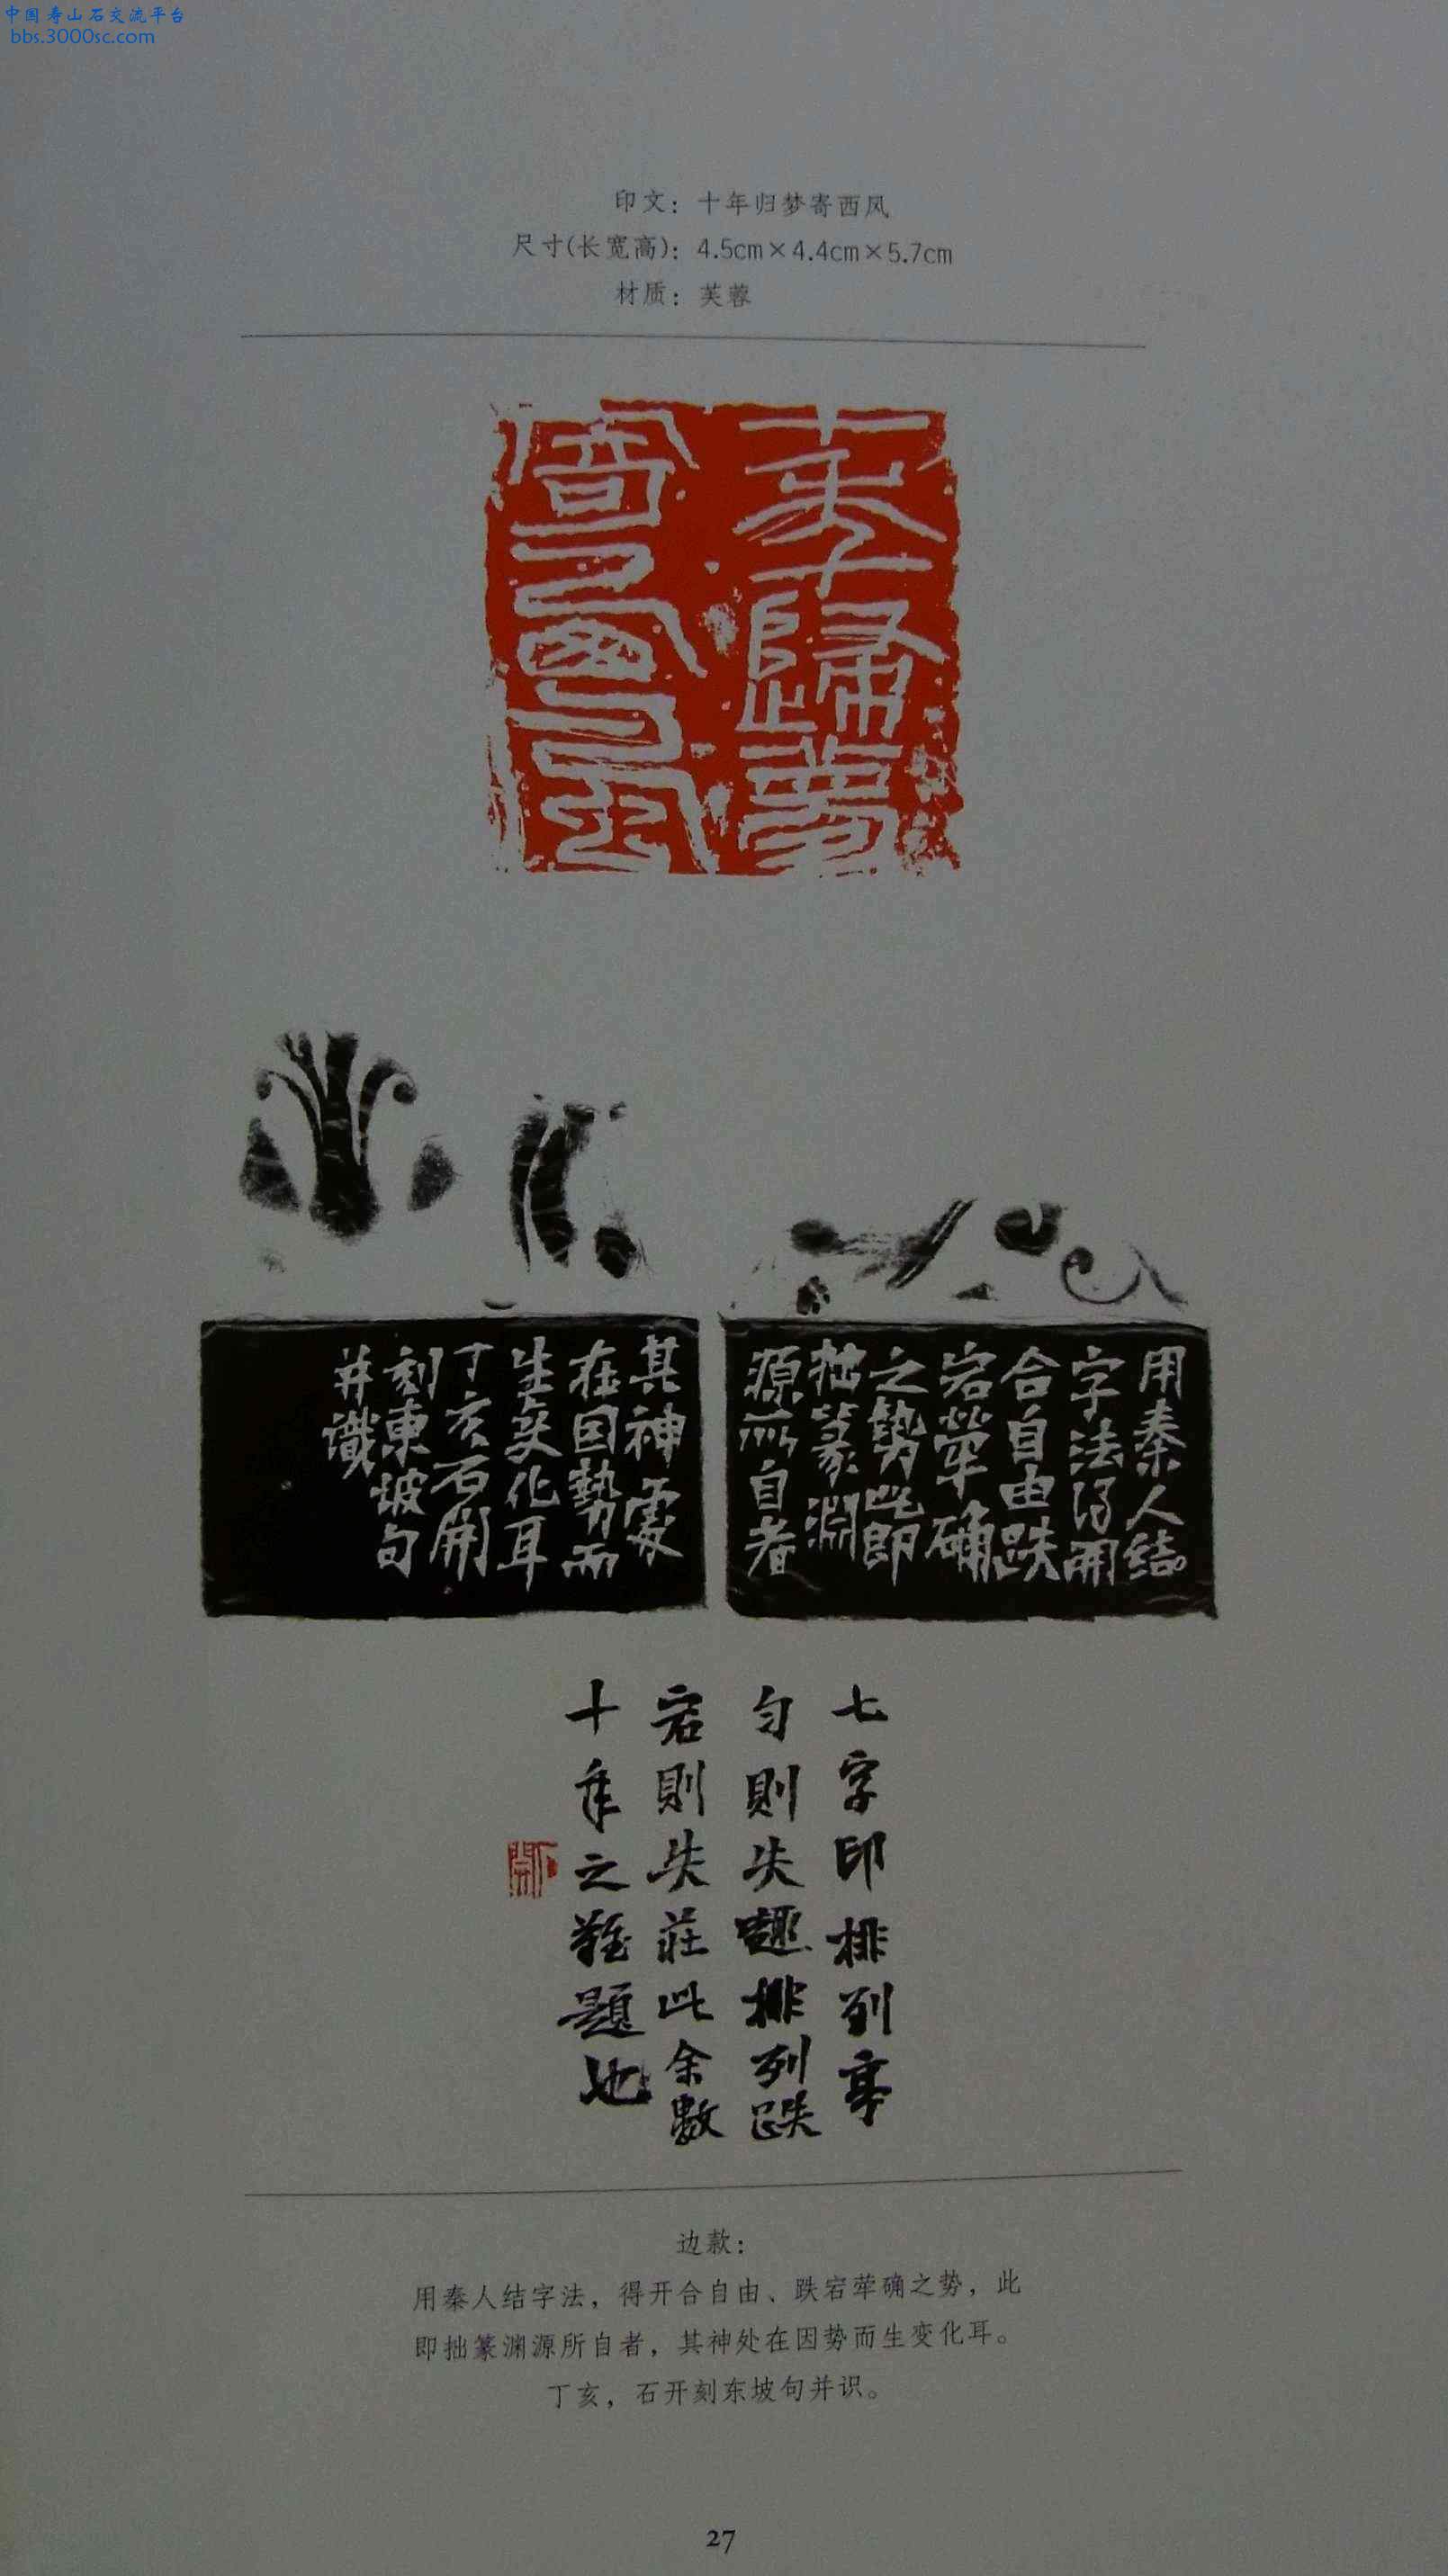 中国寿山石交流平台
bbs.3000sc.com
印文：十年归梦寄西风
尺寸(长宽高)：4.5cm×4.4cm×5.7cm
材质：芙蓉
十年歸夢
寄西風
用秦人結
字法得開
合自由跌
宕犖确
之勢此即
拙篆淵
源所自者
其神處
在因勢而
生变化耳
丁亥石開
刻東坡句
并識
七字印排列亭
匀則失趣排列跌
宕則失莊此余數
十年之難題也
石開
边款：
用秦人结字法，得开合自由、跌宕荦确之势，此
即拙篆渊源所自者，其神处在因势而生变化耳。
丁亥，石开刻东坡句并识。
27